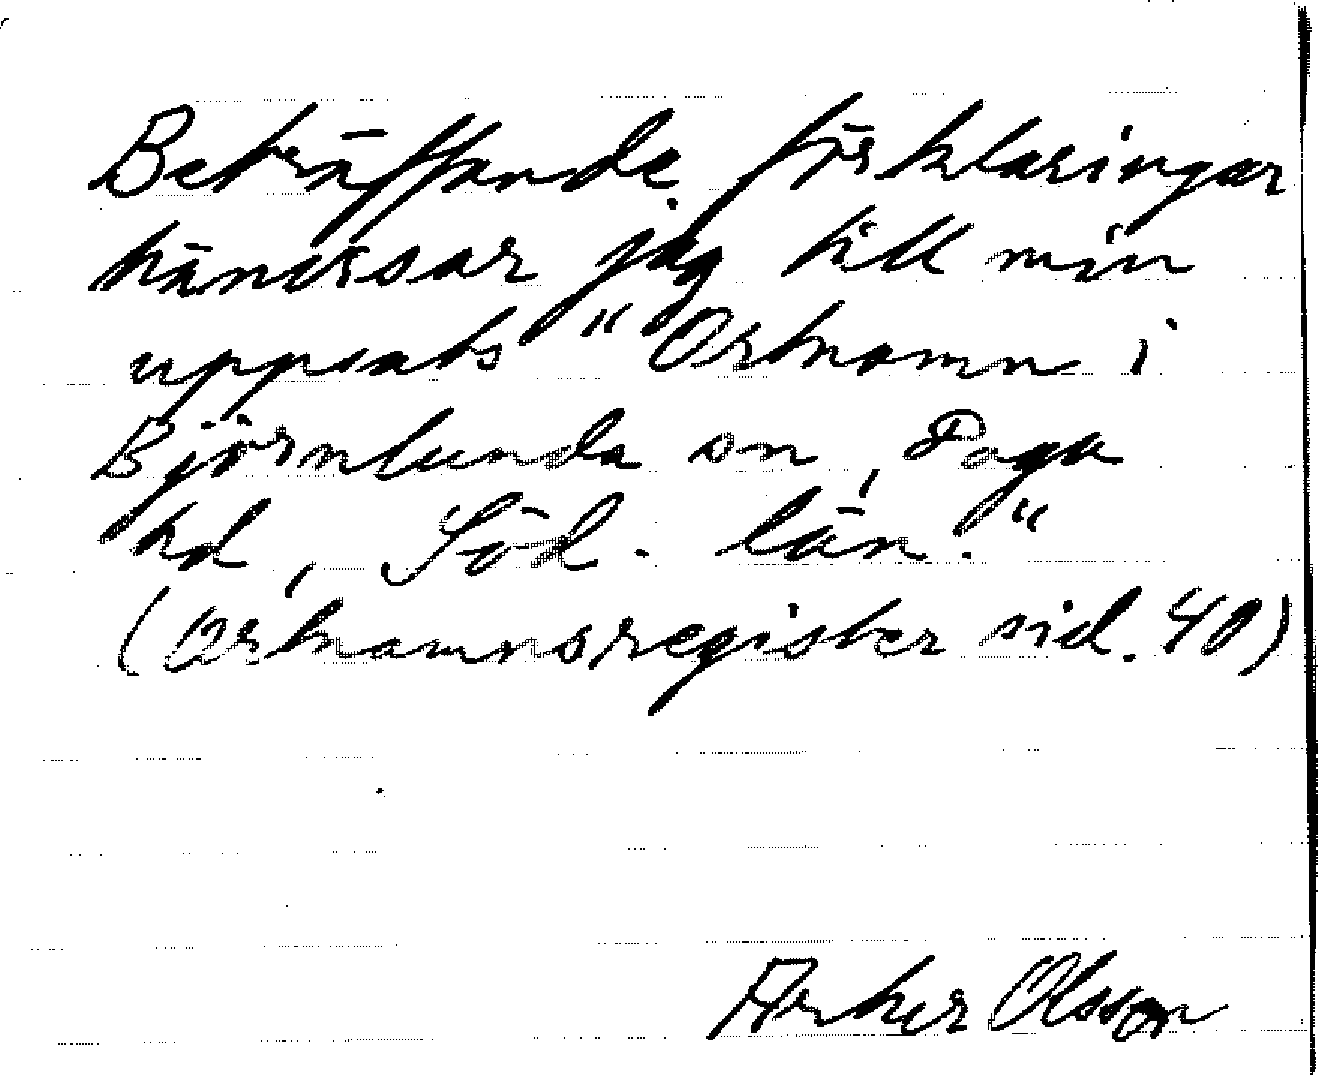 Beträffande förklaringar
hänvisar jag till min
uppsats "Ortnamn i
Björnlunda sn, Daga
hd, Söd. län."
(Ortnamnsregister sid. 40)
Olsson